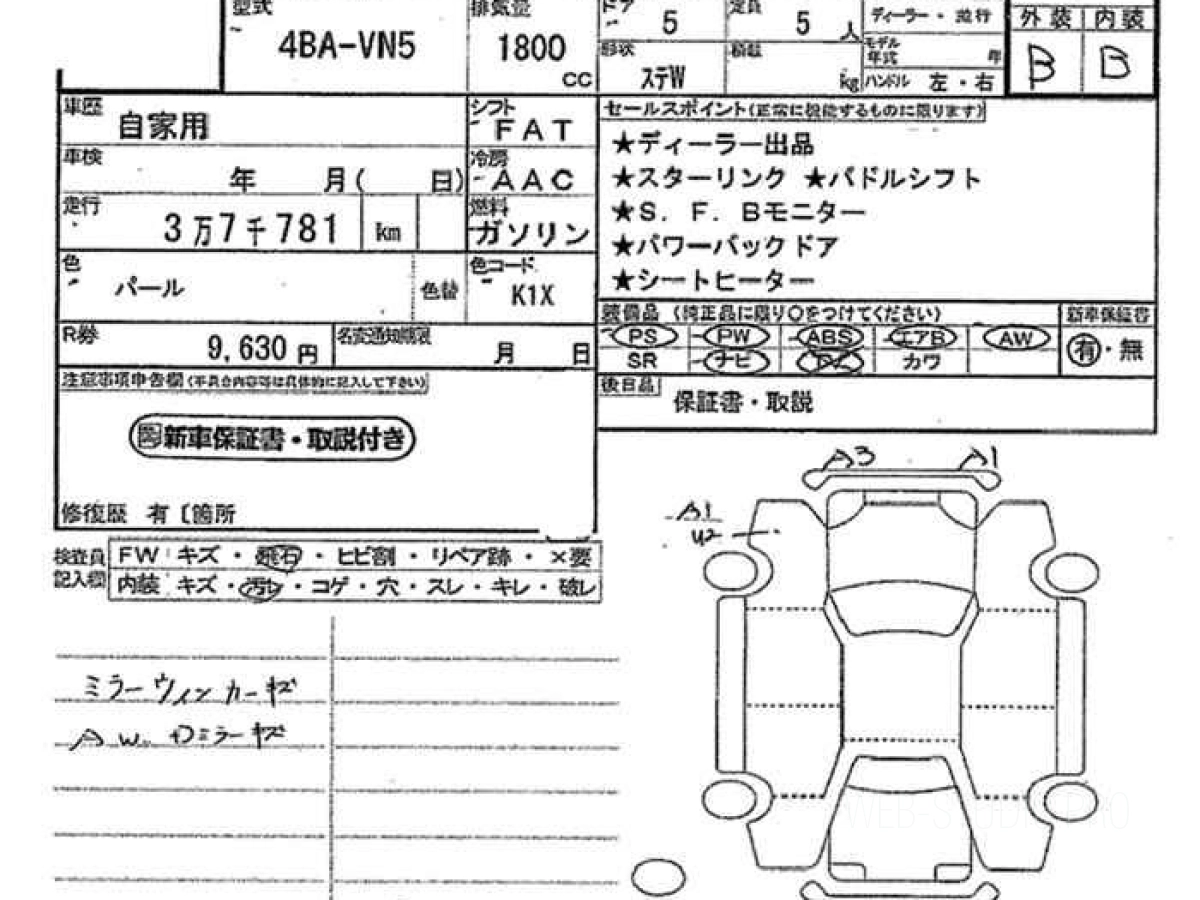 型式 排気量 ドア 定員 ディーラー・並行 外装 内装
4BA-VN5 1800 cc 5 5 人 モデル年式 年 B B
形状 ステW 積載 kg ハンドル 左・右
車歴 自家用 シフト FAT
車検 年 月( 日) 冷房 AAC
走行 3万7千781 km 燃料 ガソリン
色 パール 色替 色コード K1X
R券 9,630 円 名変通知期限 月 日
注意事項申告欄(不具合内容等は具体的に記入して下さい)
新車保証書・取説付き
修復歴 有〔箇所
セールスポイント(正常に機能するものに限ります)
★ディーラー出品
★スターリンク ★パドルシフト
★S.F.Bモニター
★パワーバックドア
★シートヒーター
装備品 (純正品に限り○をつけてください) 新車保証書
PS PW ABS エアB AW 有・無
SR ナビ カワ
後日品 保証書・取説
検査員記入欄
FW キズ・飛石・ヒビ割・リペア跡・×要
内装 キズ・汚レ・コゲ・穴・スレ・キレ・破レ
ミラーウィンカーキズ
AW. Dミラーキズ
A3 A1
A1
U2